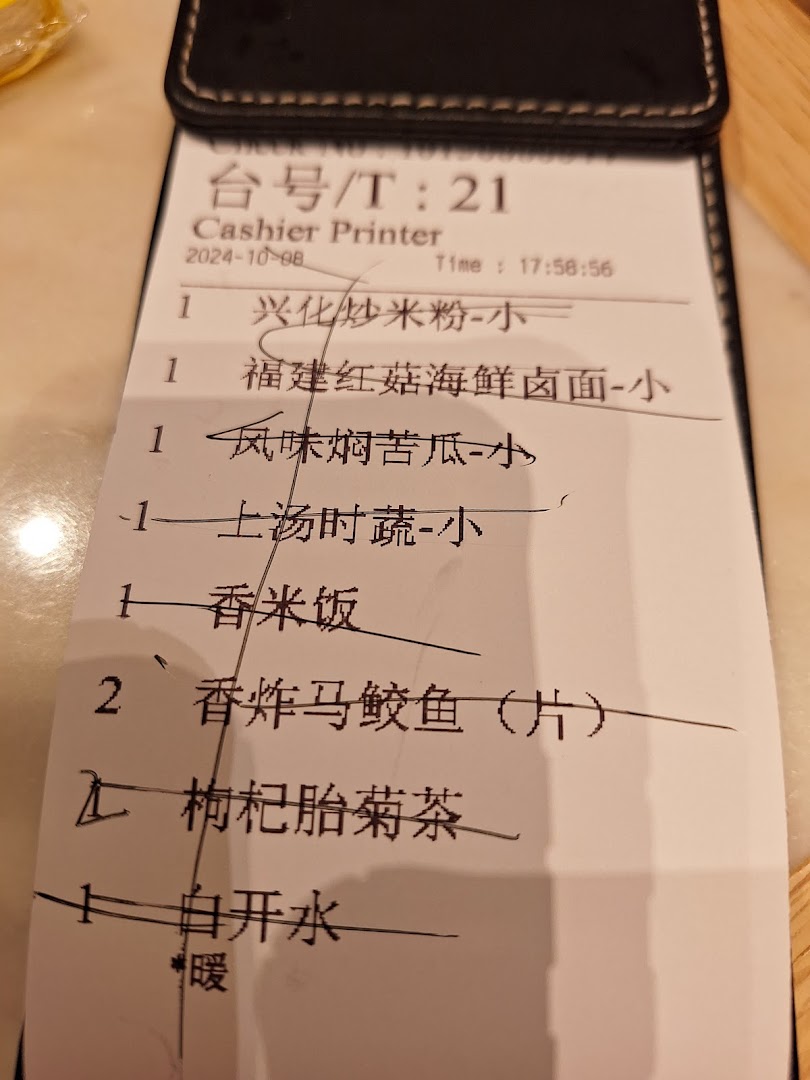 台号/T : 21
Cashier Printer
2024-10-08 Time : 17:58:56
1 兴化炒米粉-小
1 福建红菇海鲜卤面-小
1 风味焖苦瓜-小
1 上汤时蔬-小
1 香米饭
2 香炸马鲛鱼（片）
1 枸杞胎菊茶
1 白开水
*暖